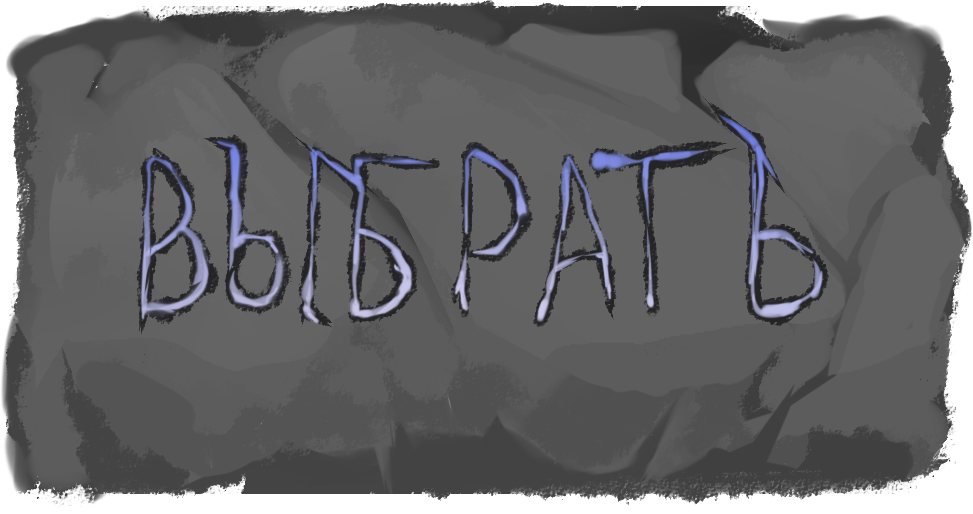 ВЫБРАТЬ